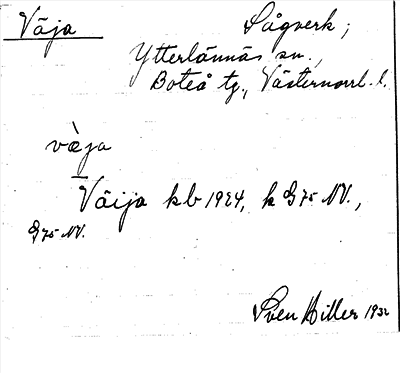 Väja Sågverk;
Ytterlännäs sn.,
Boteå tg., Västernorrl. l.
vàja
Väija kb 1924, k G75 NV.,
G75 NV.
Sven Hiller 1932